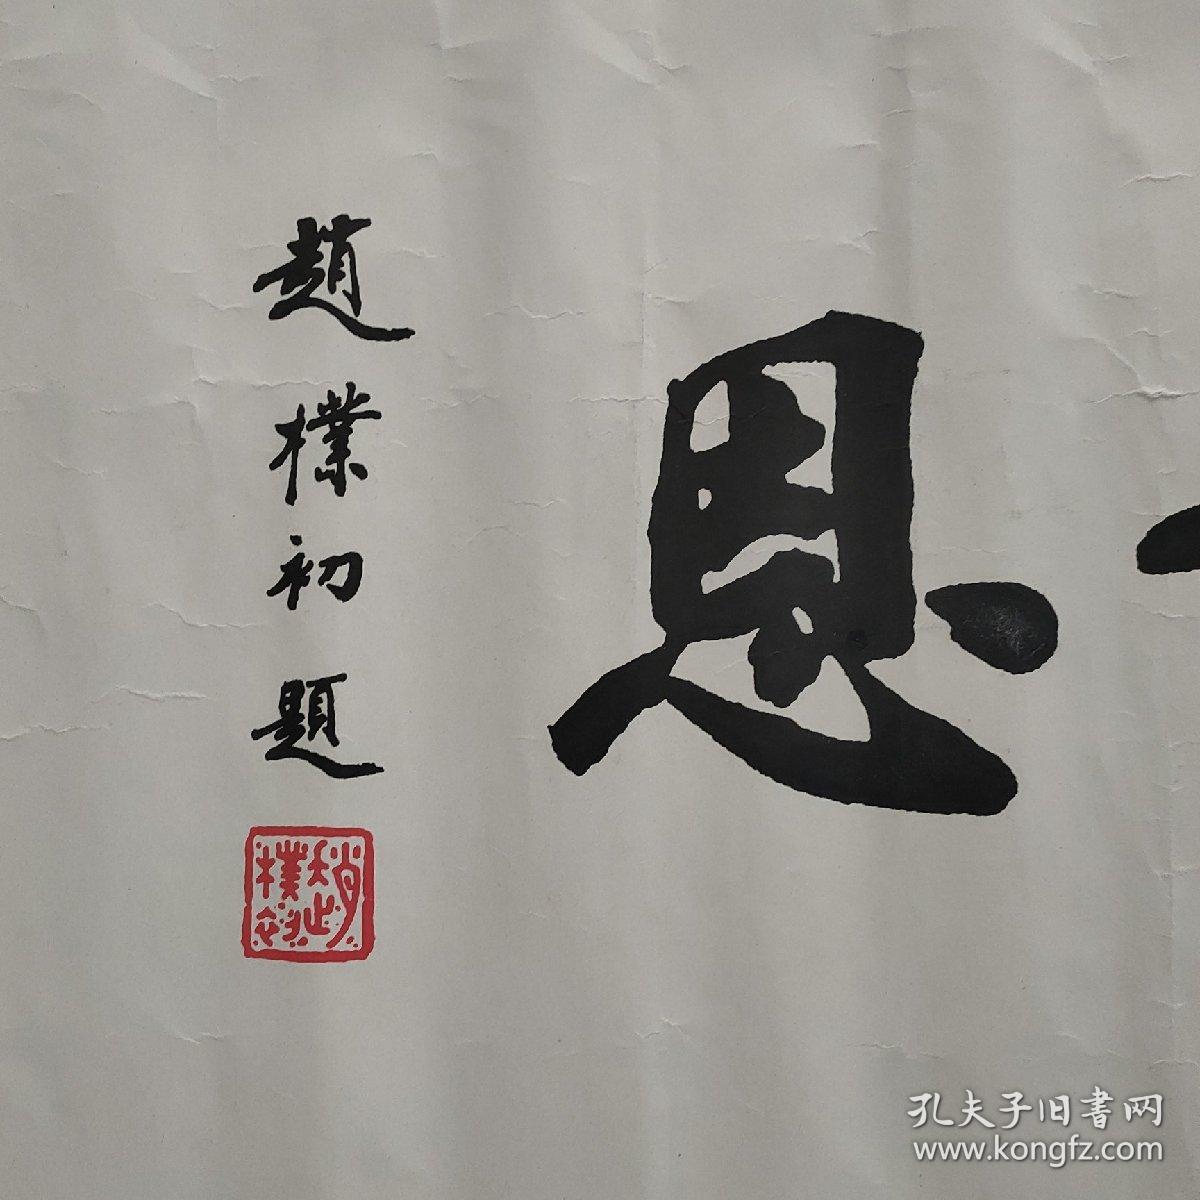 恩
趙樸初題
趙樸初
孔夫子旧書网
www.kongfz.com